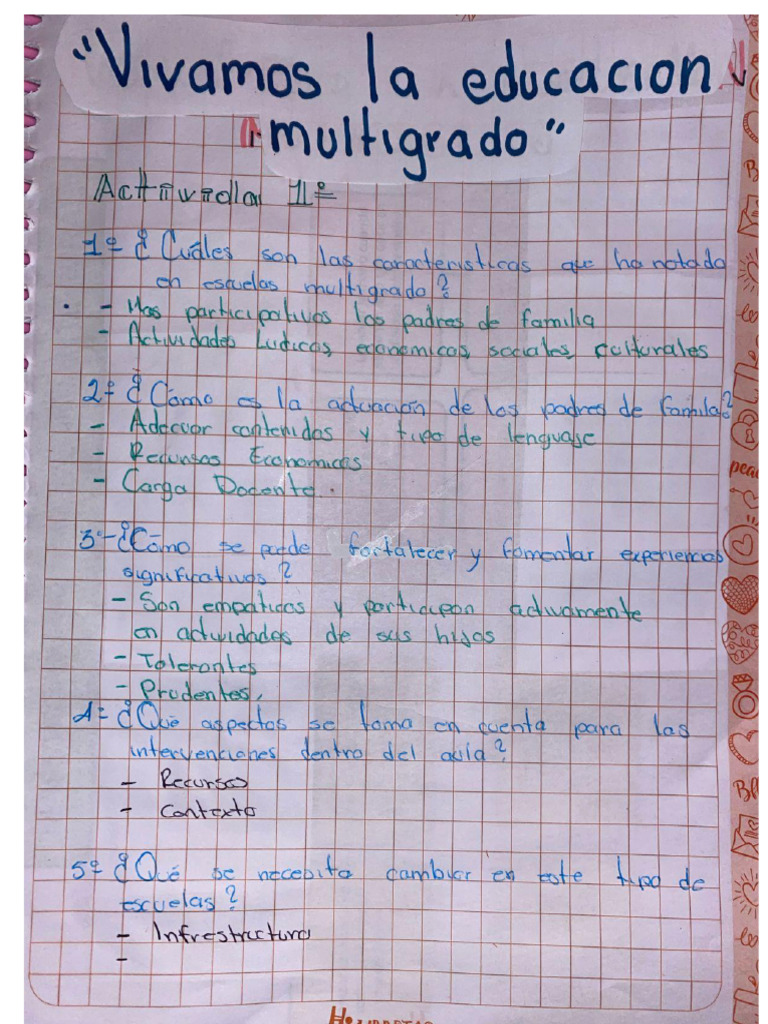 "Vivamos la educacion
multigrado"
Actividad 1º
1º ¿Cuáles son las caracteristicas que ha notado
en escuelas multigrado?
- Mas participativos los padres de familia
- Actividades Ludicas, economicas, sociales, culturales
2º ¿Cómo es la actuación de los padres de familia?
- Adecuar contenidos y tipo de lenguaje
- Recursos Economicos
- Carga Docente.
3º- ¿Cómo se puede fortalecer y fomentar experiencias
significativas?
- Son empaticos y participan activamente
en actividades de sus hijos
- Tolerantes
- Prudentes,
4= ¿Qué aspectos se toma en cuenta para las
intervenciones dentro del aula?
- Recursos
- Contexto
5º ¿Qué se necesita cambiar en este tipo de
escuelas?
- Infrestructura
-